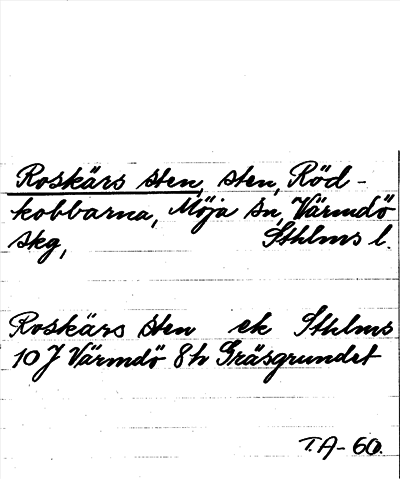 Roskärs sten, sten, Röd-
kobbarna, Möja sn, Värmdö
skg, Sthlms l.
Roskärs sten ek Sthlms
10 J Värmdö 8h Gräsgrundet
T.A-60.